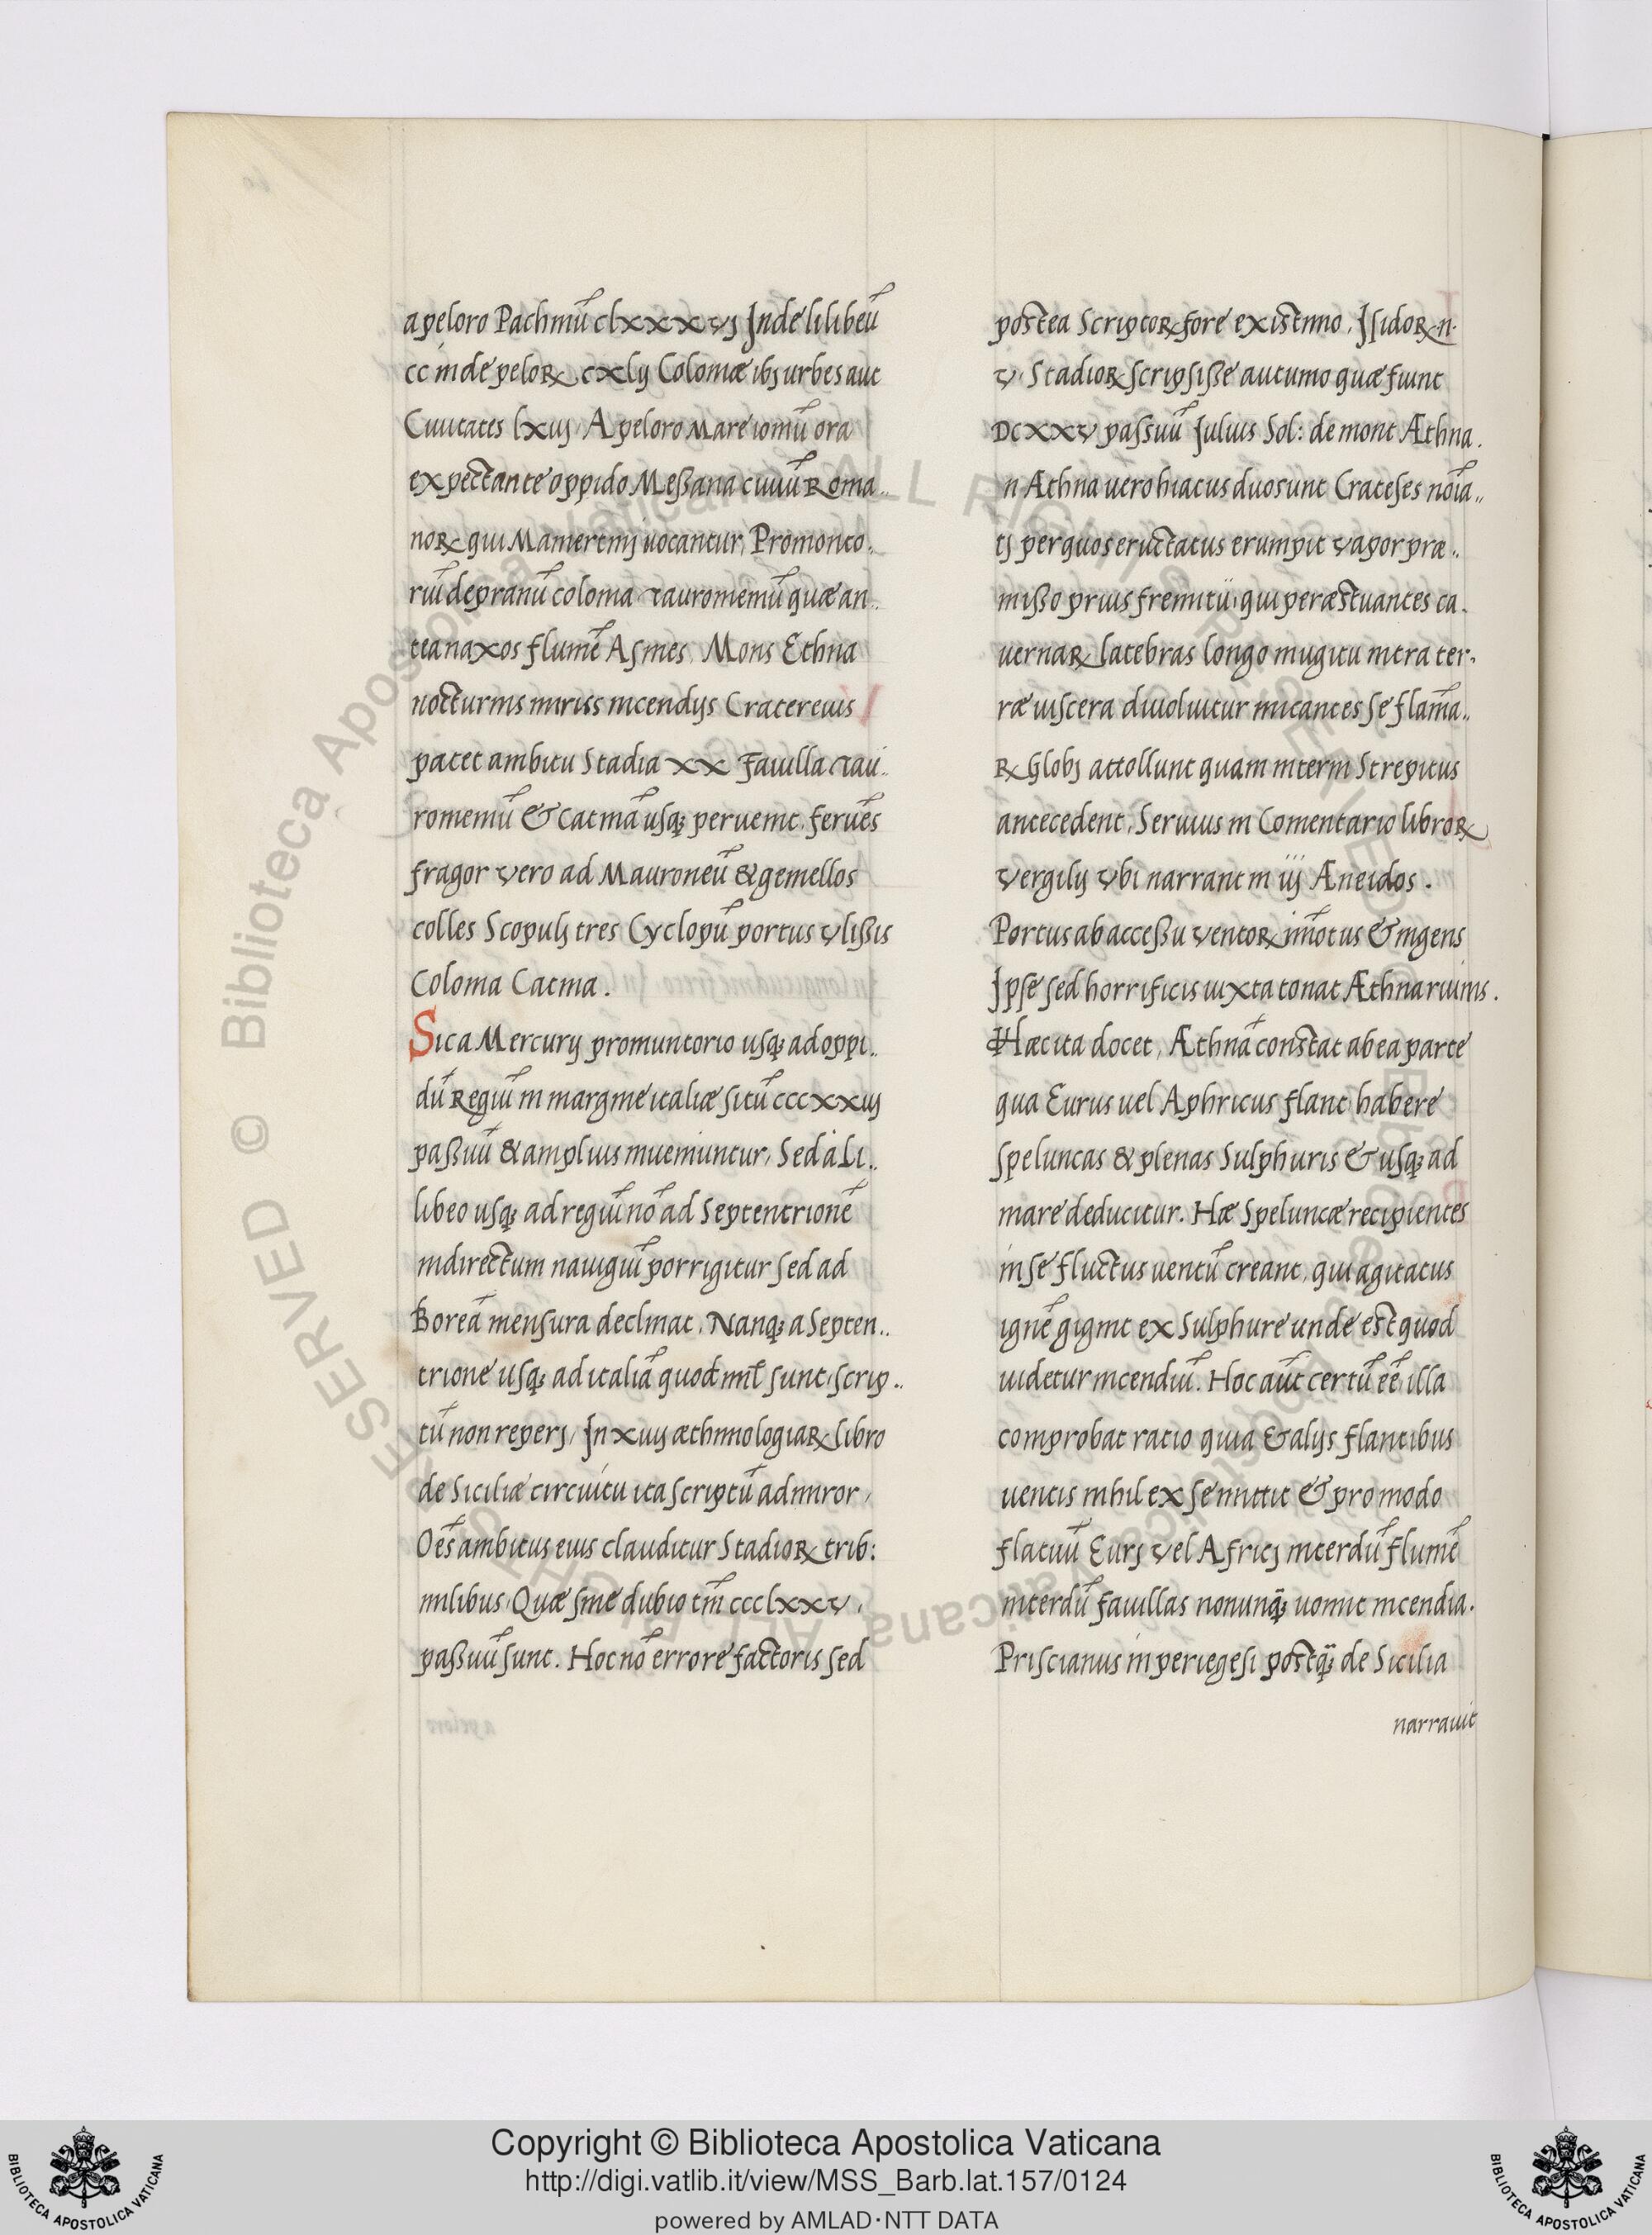 a peloro Pachinū clxxxvj Inde lilibeū
cc inde peloꝝ cxlij Coloniæ ibj urbes aut
Ciuitates lxiij A peloro Mare ioniū ora
expectante oppido Meßana ciuiū Roma..
noꝝ qui Mamertinj uocantur, Promonto..
riū depranū colonia tauromeniū quæ an..
tea naxos flumē Asines. Mons Ethna
nocturnis miriss incendijs Cratere eius
patet ambitu Stadia xx fauilla tau..
romeniū & catinā usqȝ peruenit, feruēs
fragor vero ad Mauroneū & gemellos
colles Scopulj tres Cyclopū portus vlißis
Colonia Catina.
Sic a Mercurij promuntorio usqȝ ad oppi..
dū Regiū in margine italiæ sitū cccxxiij
paßuū & amplius inueniuntur, Sed à Li..
libeo usqȝ ad regiū nō ad Septentrionē
indirectum nauigiū porrigitur sed ad
Boreā mensura declinat, Nanqȝ a Septen..
trione usqȝ ad italiā quod mil̄ sunt, scrip..
tū non reperj, In xiiij æthimologiaꝝ libro
de Siciliæ circuitu ita scriptū admiror,
Oēs ambitus eius clauditur Stadioꝝ trib:
milibus, Quæ sine dubio tm̄ ccclxxv,
paßuū sunt. Hoc nō errore factoris sed
postea Scriptoꝝ fore existimo, Isidoꝝ .n.
v. Stadioꝝ scripsiße autumo quæ fiunt
DCXXV passuū Julius Sol: de mont Æthna.
n Æthna uero hiatus duo sunt Crateses noīa..
tj per quos eructatus erumpit vapor præ..
mißo prius fremitu, qui per æstuantes ca..
uernaꝝ latebras longo mugitu intra ter..
ræ uiscera diuoluitur micantes se flam̄a..
ꝝ Globj attollunt quam interim Strepitus
antecedent, Seruius in Comentario libroꝝ
Vergilij vbi narrant in iij Æneidos.
Portus ab acceßu ventoꝝ im̄otus & ingens
Ipse sed horrificis iuxta tonat Æthna ruinis.
Hæc ita docet, Æthnā constat ab ea parte
qua Eurus uel Aphricus flant habere
speluncas & plenas Sulphuris & usqȝ ad
mare deducitur. Hæ Speluncæ recipientes
in se fluctus uentū creant, qui agitatus
ignē gignit ex Sulphure unde est quod
uidetur incendiū. Hoc aūt certū eē, illa
comprobat ratio quia & alijs flantibus
uentis nihil ex se mittit & pro modo
flatuū Eurj vel Africj interdū flumē
interdū fauillas nonunq̄ȝ uomit incendia.
Priscianus in periegesi postq̄ȝ de Sicilia
narrauit
Biblioteca Apostolica Vaticana ALL RIGHTS RESERVED ©
Copyright © Biblioteca Apostolica Vaticana
http://digi.vatlib.it/view/MSS_Barb.lat.157/0124
powered by AMLAD·NTT DATA
BIBLIOTECA APOSTOLICA VATICANA
BIBLIOTECA APOSTOLICA VATICANA